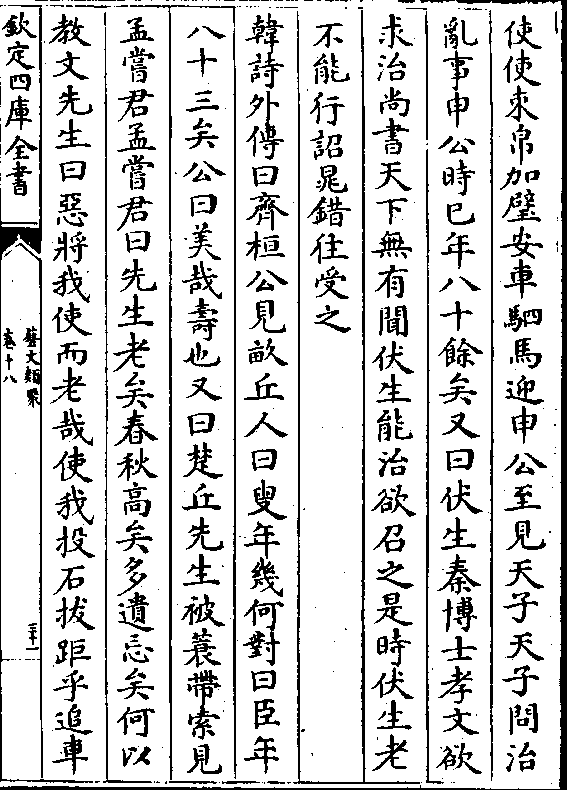 使使束帛加璧安車駟馬迎申公至見天子天子問治
亂事申公時已年八十餘矣又曰伏生秦博士孝文欲
求治尚書天下無有聞伏生能治欲召之是時伏生老
不能行詔晁錯往受之
韓詩外傳曰齊桓公見畝丘人曰叟年幾何對曰臣年
八十三矣公曰美哉壽也又曰楚丘先生被蓑帶索見
孟嘗君孟嘗君曰先生老矣春秋高矣多遺忘矣何以
教文先生曰惡將我使而老哉使我投石拔距乎追車
欽定四庫全書
藝文類聚
卷十八